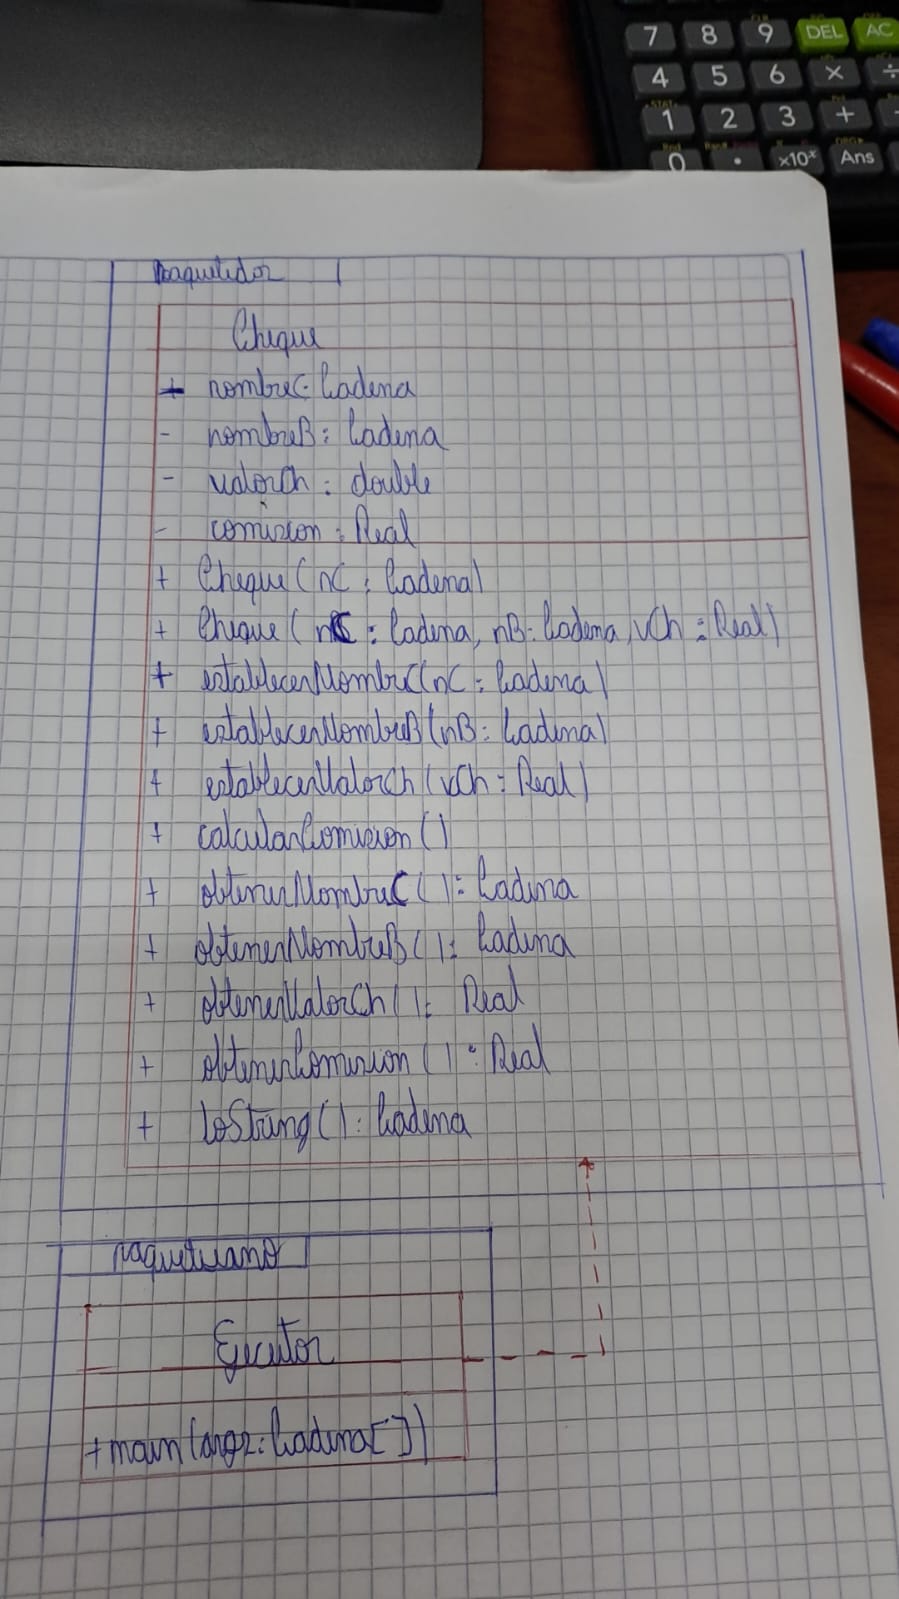 7 8 9 DEL AC
4 5 6 × ÷
1 2 3 +
0 . ×10ˣ Ans
paquetedos
Cheque
+ nombreC: Cadena
- nombreB: Cadena
- valorCh: double
- comision: Real
+ Cheque(nC: Cadena)
+ Cheque(nC: Cadena, nB: Cadena, vCh: Real)
+ establecerNombreC(nC: Cadena)
+ establecerNombreB(nB: Cadena)
+ establecerValorCh(vCh: Real)
+ calcularComision()
+ obtenerNombreC(): Cadena
+ obtenerNombreB(): Cadena
+ obtenerValorCh(): Real
+ obtenerComision(): Real
+ toString(): Cadena
paqueteuno
Ejecutor
+main(args: Cadena[])